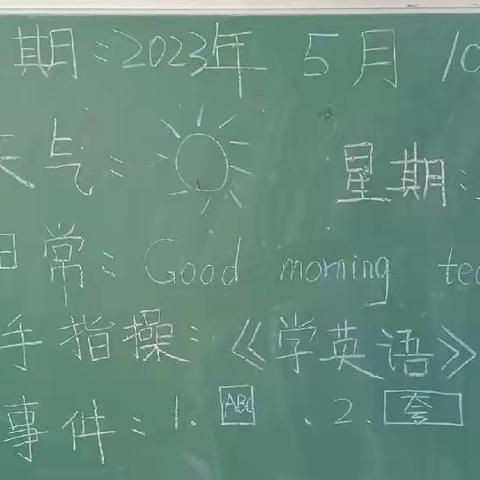 期:2023年 5月 10
天气:
星期:
日常: Good morning tea
手指操:《学英语》
事件: 1. ABC 、2. 夸